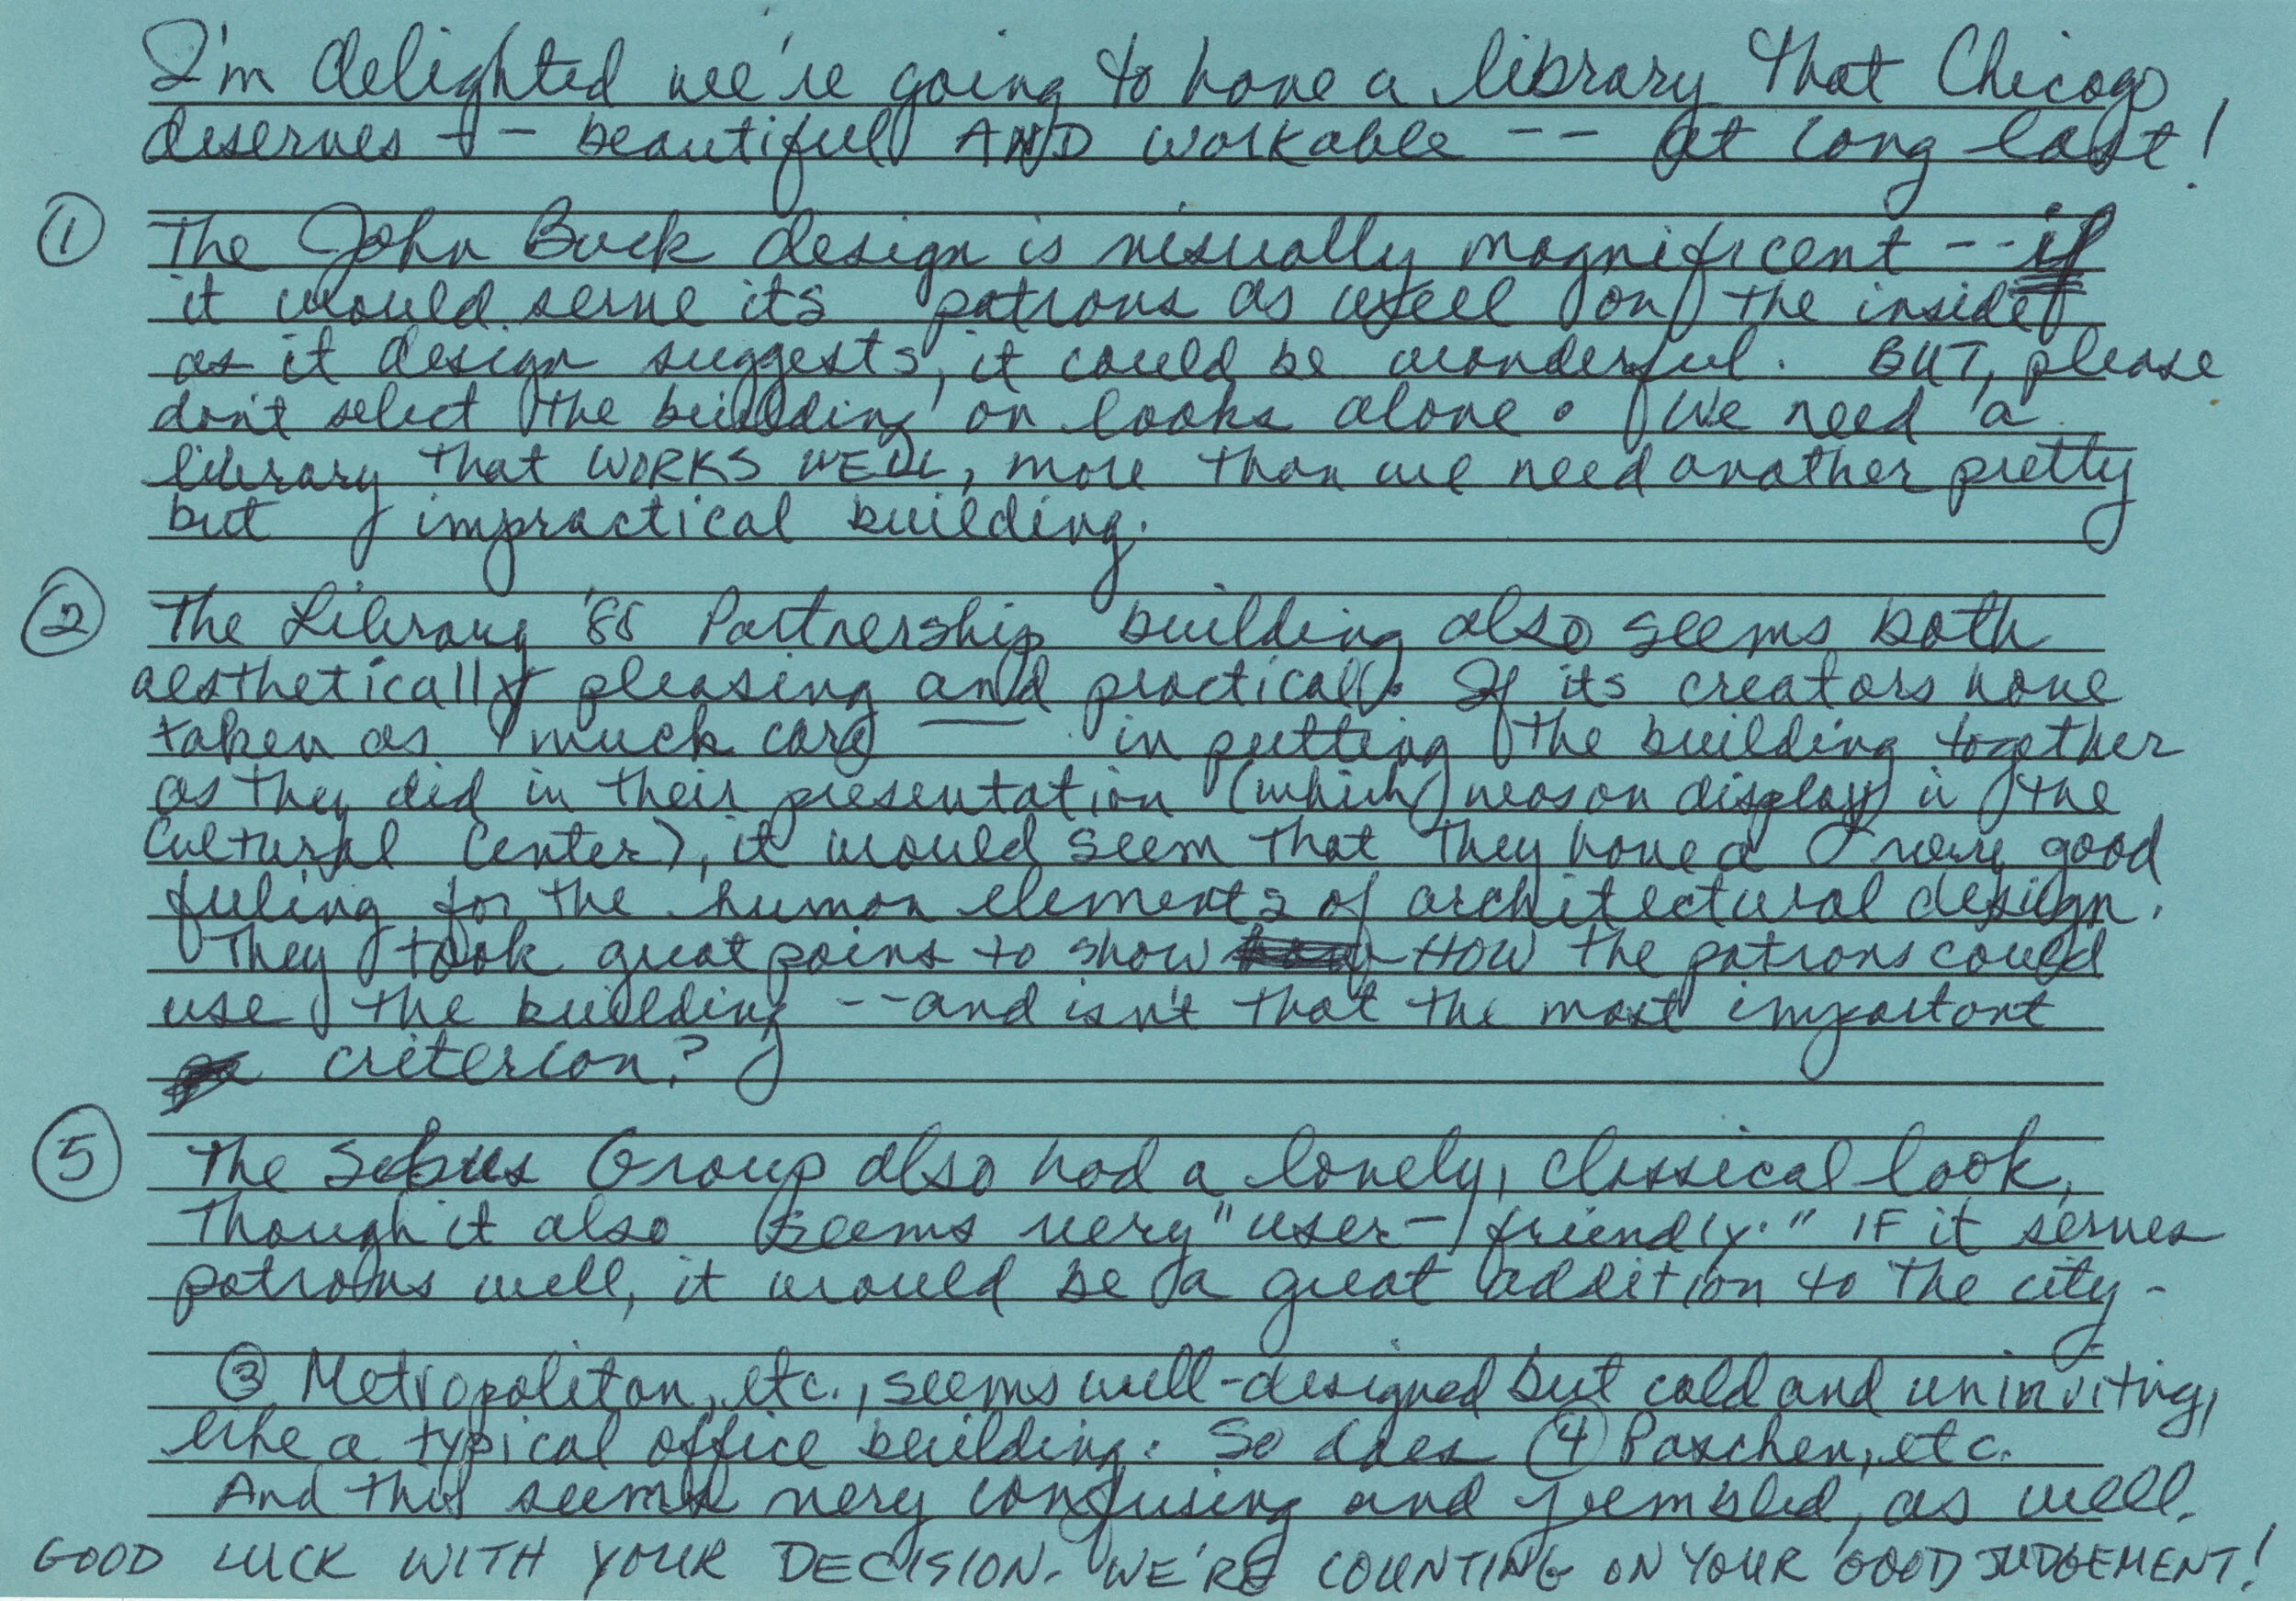 I'm delighted we're going to have a library that Chicago
deserves -- beautiful AND workable -- at long last!
① The John Buck design is visually magnificent -- if
it would serve its patrons as well on the inside
as it design suggests, it could be wonderful. BUT, please
don't select the building on looks alone. We need a
library that WORKS WELL, more than we need another pretty
but impractical building.
② The Library '88 Partnership building also seems both
aesthetically pleasing and practical. If its creators have
taken as much care in putting the building together
as they did in their presentation (which was on display in the
Cultural Center), it would seem that they have a very good
feeling for the human elements of architectural design.
They took great pains to show HOW the patrons could
use the building -- and isn't that the most important
criterion?
⑤ The Sebus Group also had a lovely, classical look,
Though it also seems very "user-friendly." IF it serves
patrons well, it would be a great addition to the city -
③ Metropolitan, etc., seems well-designed but cold and uninviting,
like a typical office building. So does ④ Paschen, etc.
And this seems very confusing and jumbled, as well.
GOOD LUCK WITH YOUR DECISION. WE'RE COUNTING ON YOUR GOOD JUDGEMENT!